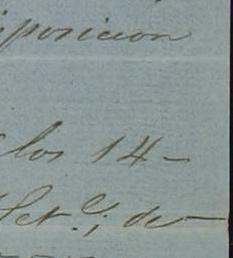 posicion
los 14-
Set.e; de